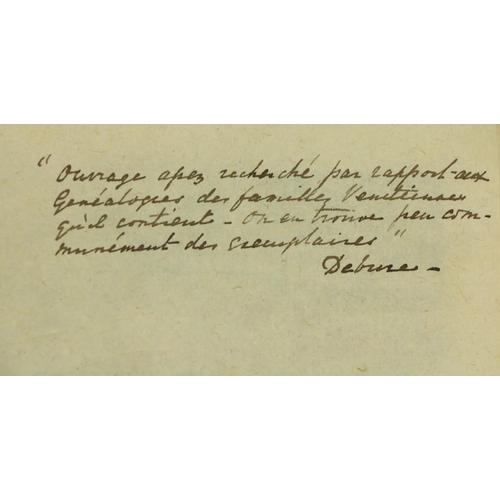 " Ouvrage assez recherché par rapport aux
Genéalogies des familles Venitiennes
qu'il contient - On en trouve peu com-
munément des exemplaires "
Debure -